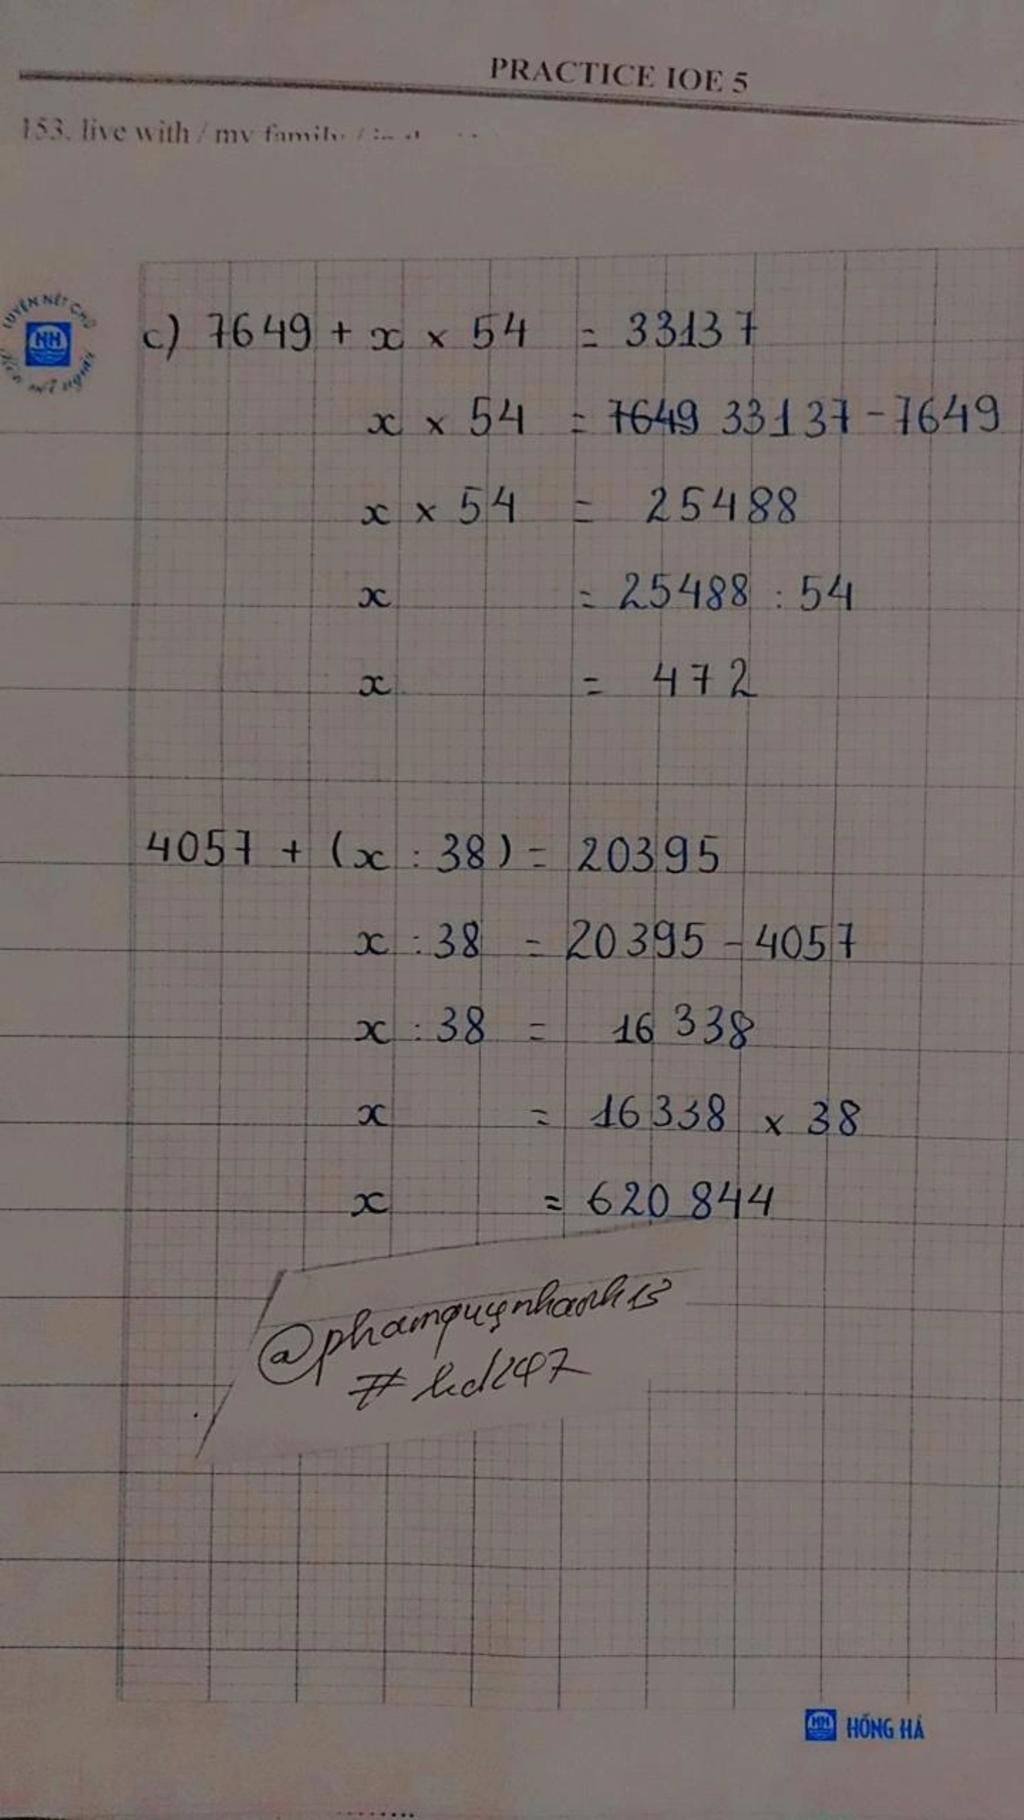 PRACTICE IOE 5
153. live with / my family /
LUYỆN NÉT CHỮ
HH
Rèn nết người
c) 7649 + x × 54 = 33137
x × 54 = 7649 33137 - 7649
x × 54 = 25488
x = 25488 : 54
x = 472
4057 + (x : 38) = 20395
x : 38 = 20395 - 4057
x : 38 = 16 338
x = 16338 × 38
x = 620 844
@phamquynhanh13
# hd247
HH HỒNG HÀ